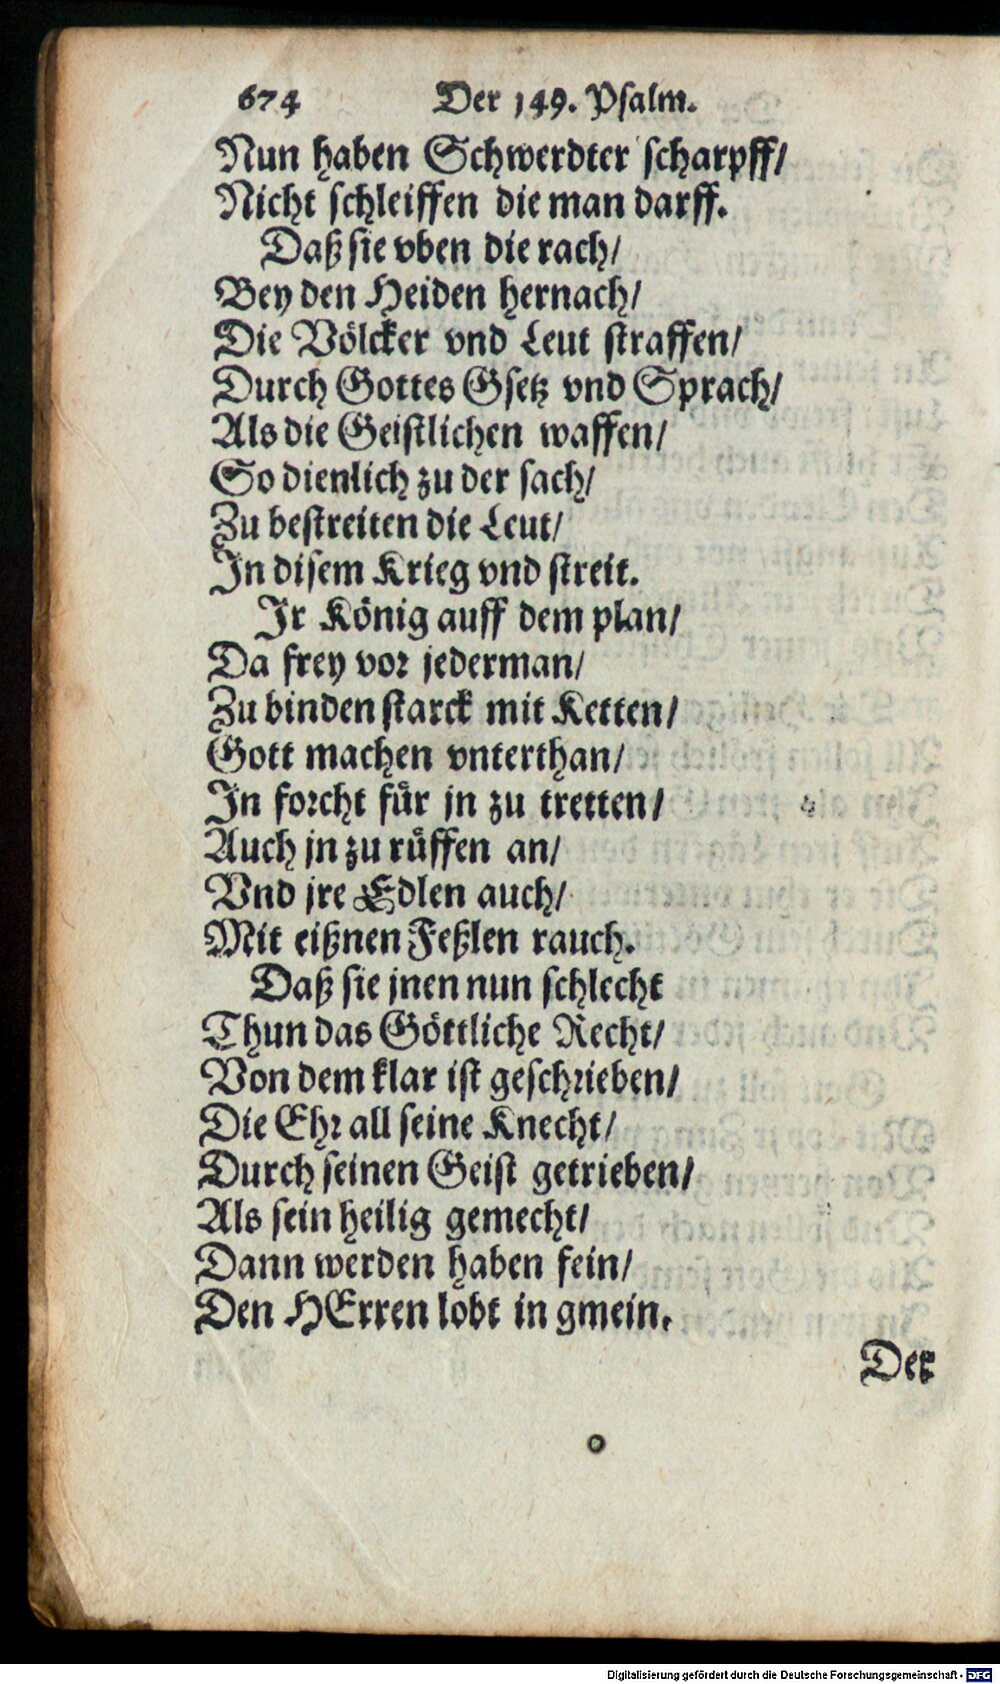 674 Der 149. Psalm.
Nun haben Schwerdter scharpff/
Nicht schleiffen die man darff.
Daß sie vben die rach/
Bey den Heiden hernach/
Die Völcker vnd Leut straffen/
Durch Gottes Gsetz vnd Sprach/
Als die Geistlichen waffen/
So dienlich zu der sach/
Zu bestreiten die Leut/
In disem Krieg vnd streit.
Ir König auff dem plan/
Da frey vor jederman/
Zu binden starck mit Ketten/
Gott machen vnterthan/
In forcht für jn zu tretten/
Auch jn zu rüffen an/
Vnd jre Edlen auch/
Mit eißnen Feßlen rauch.
Daß sie jnen nun schlecht
Thun das Göttliche Recht/
Von dem klar ist geschrieben/
Die Ehr all seine Knecht/
Durch seinen Geist getrieben/
Als sein heilig gemecht/
Dann werden haben fein/
Den HErren lobt in gmein.
Der
Digitalisierung gefördert durch die Deutsche Forschungsgemeinschaft - DFG